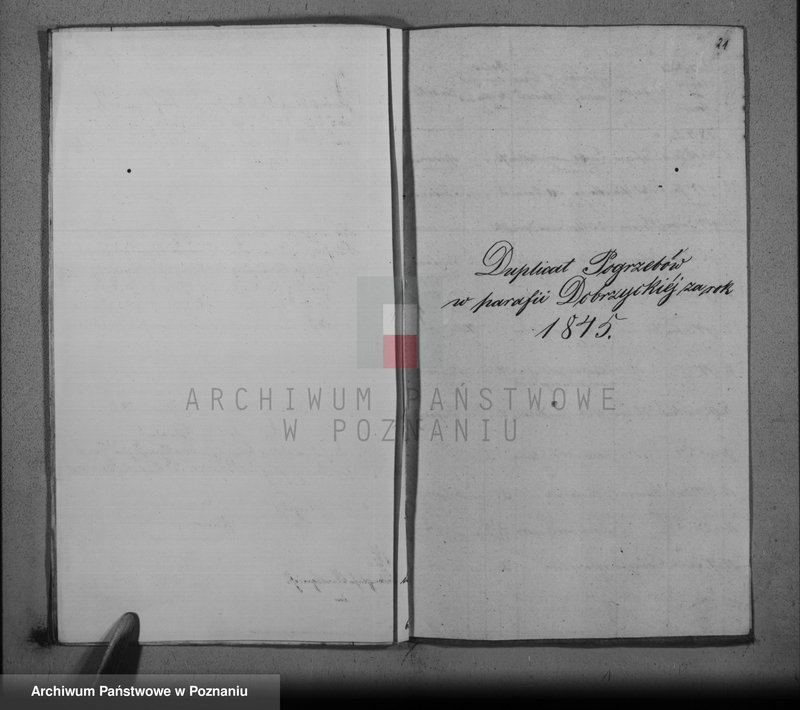 21
Duplicat Pogrzebów
w parafii Dobrzyckiéj za rok
1845.
ARCHIWUM PAŃSTWOWE
W POZNANIU
Archiwum Państwowe w Poznaniu